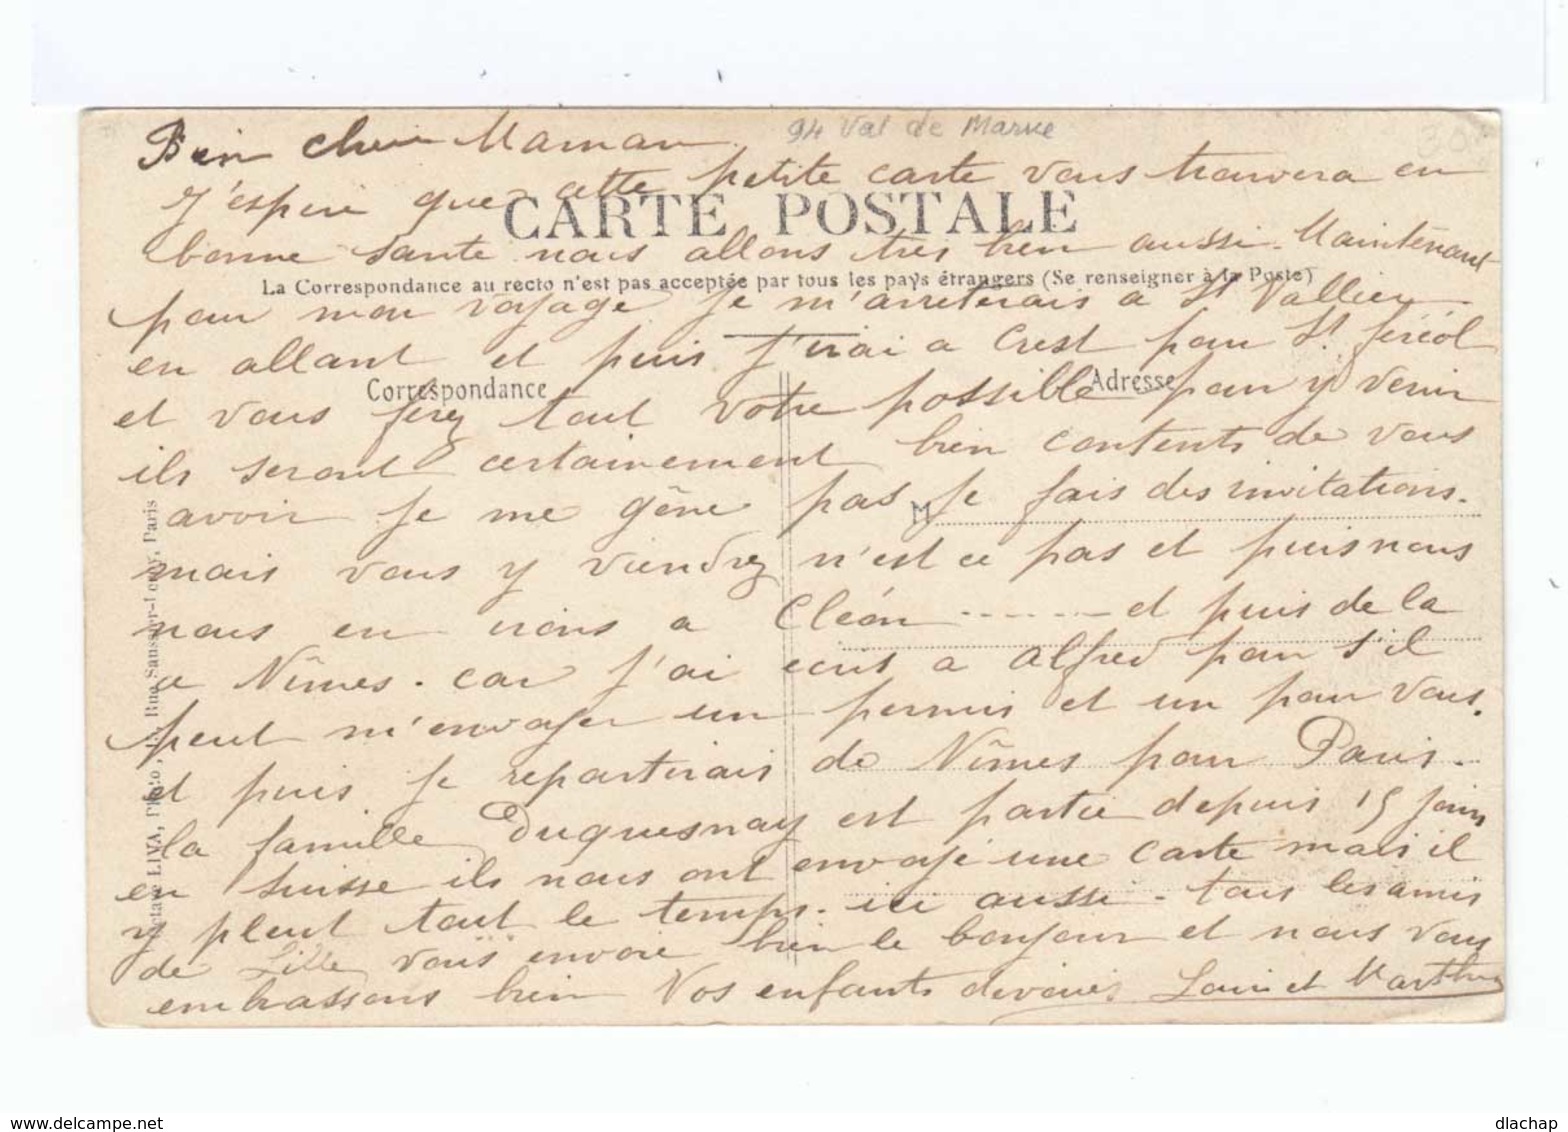 Bien chère Maman
94 Val de Marne
J'espère que cette petite carte vous trouvera en
CARTE POSTALE
bonne santé nous allons très bien aussi. Maintenant
La Correspondance au recto n'est pas acceptée par tous les pays étrangers (Se renseigner à la Poste)
pour mon voyage je m'arreterais a St Vallier
en allant et puis j'irai a Crest pour St Féréol
Correspondance
Adresse
et vous ferez tout votre possible pour y venir
ils seront certainement bien contents de vous
avoir je me gêne pas je fais des invitations.
M
mais vous y viendrez n'est ce pas et puis nous
nous en irons a Cléon ------ et puis de la
a Nîmes. car j'ai ecris a alfred pour s'il
peut m'envoyer un permis et un pour vous.
et puis je repartirais de Nîmes pour Paris.
la famille Duquesnay est partie depuis 15 juin
en Suisse ils nous ont envoyé une carte mais il
y pleut tout le temps. ici aussi. tous les amis
de Lille vous envoie bien le bonjour et nous vous
embrassons bien Vos enfants devoués Louis et Marthe
LIVA, Photo, Rue Saussier-Leroy, Paris
delcampe.net
dlachap